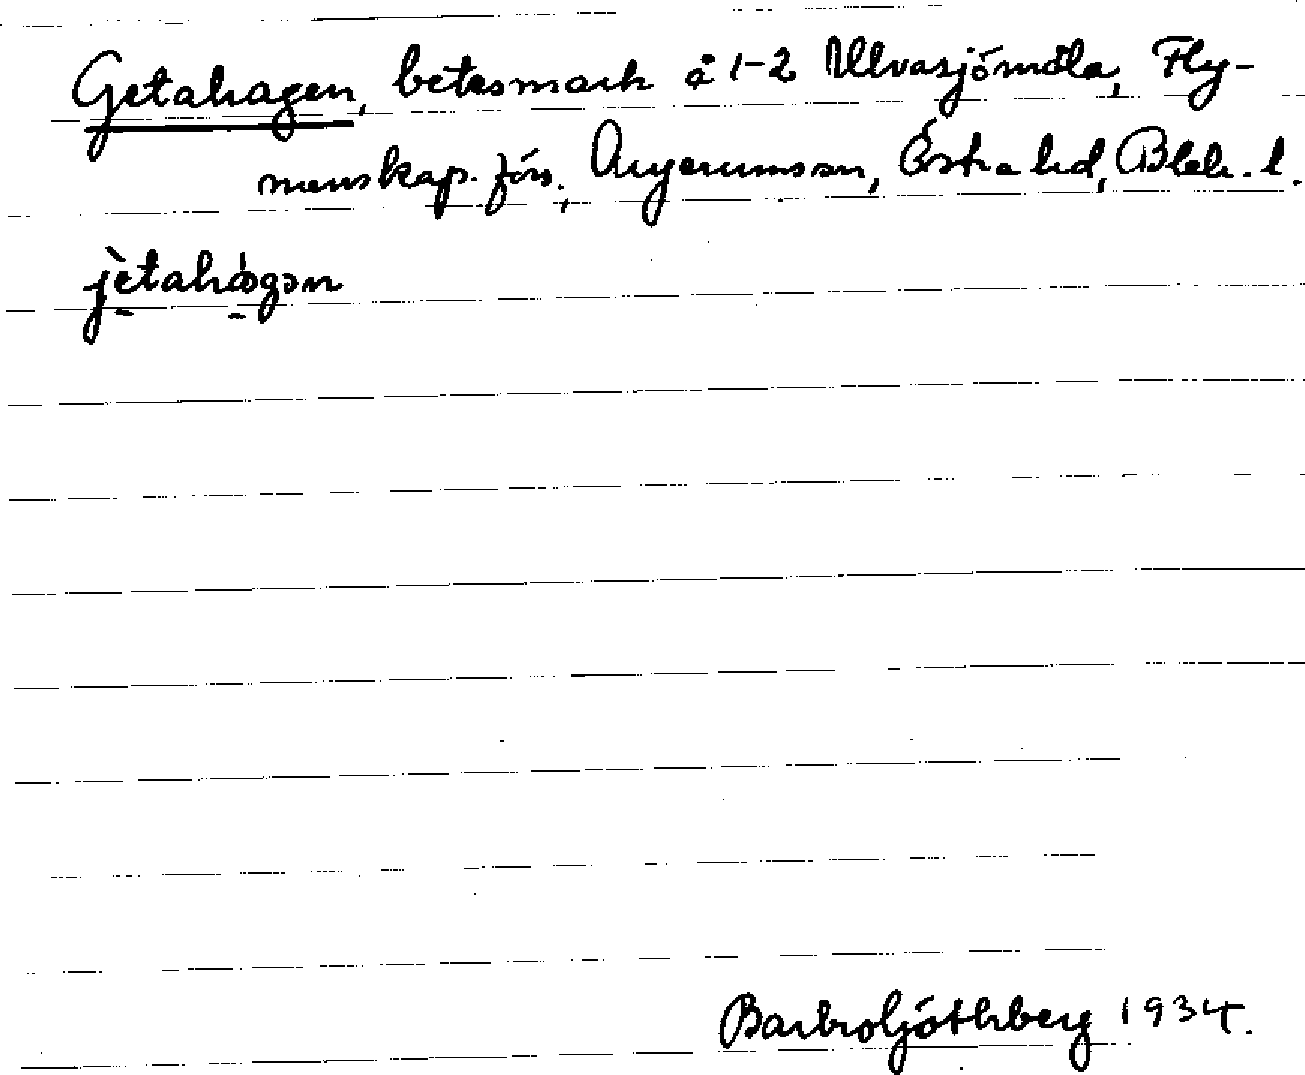 Getahagen, betesmark å 1-2 Ulvasjömåla, Fly-
menskap. förs., Augerums sn, Östra hd, Blek. l.
jètahágən
Barbro Göthberg 1934.